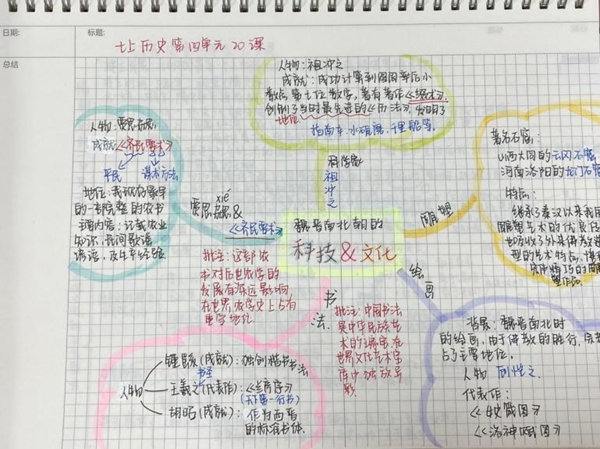 日期:
标题:
七上历史第四单元20课
总结
人物:祖冲之
成就:成功计算到圆周率后小
数点第七位数字,著有著作《缀术》,
创制了当时最先进的《历法》,发明了
地位:
指南车,水碓磨,千里船等.
科学家
祖
冲
之
人物:贾思勰
成就:《齐民要术》
平民
谋生方法
地位:我现存最早
的一部完整的农书
主要内容:记载农业
知识,民间歌谣
谚语,及生产经验
xié
贾思勰&
《齐民要术》
批注:这部农
书对后世农学的
发展有深远影响,
在世界农学史上占有
重要地位
魏晋南北朝的
科技&文化
雕塑
著名石窟:
山西大同的云冈石窟
河南洛阳的龙门石窟
特点:
继承了秦汉以来我
雕塑艺术的优良
地吸收了外来佛教
型的艺术特点,
绘画
背景:魏晋南北时
的绘画,由于佛教的盛行,宗
占了主要地位.
人物 顾恺之
代表作:
《女箴图》
《洛神赋图》
书
法
批注:中国书法
是中华民族艺
术的瑰宝,在
世界文化艺术宝
库中独放异
彩
人物
钟繇(成就):独创楷书书法
书圣
王羲之(代表作):《兰亭序》
(天下第一行书)
胡昭(成就):作为西晋
的标准书体.